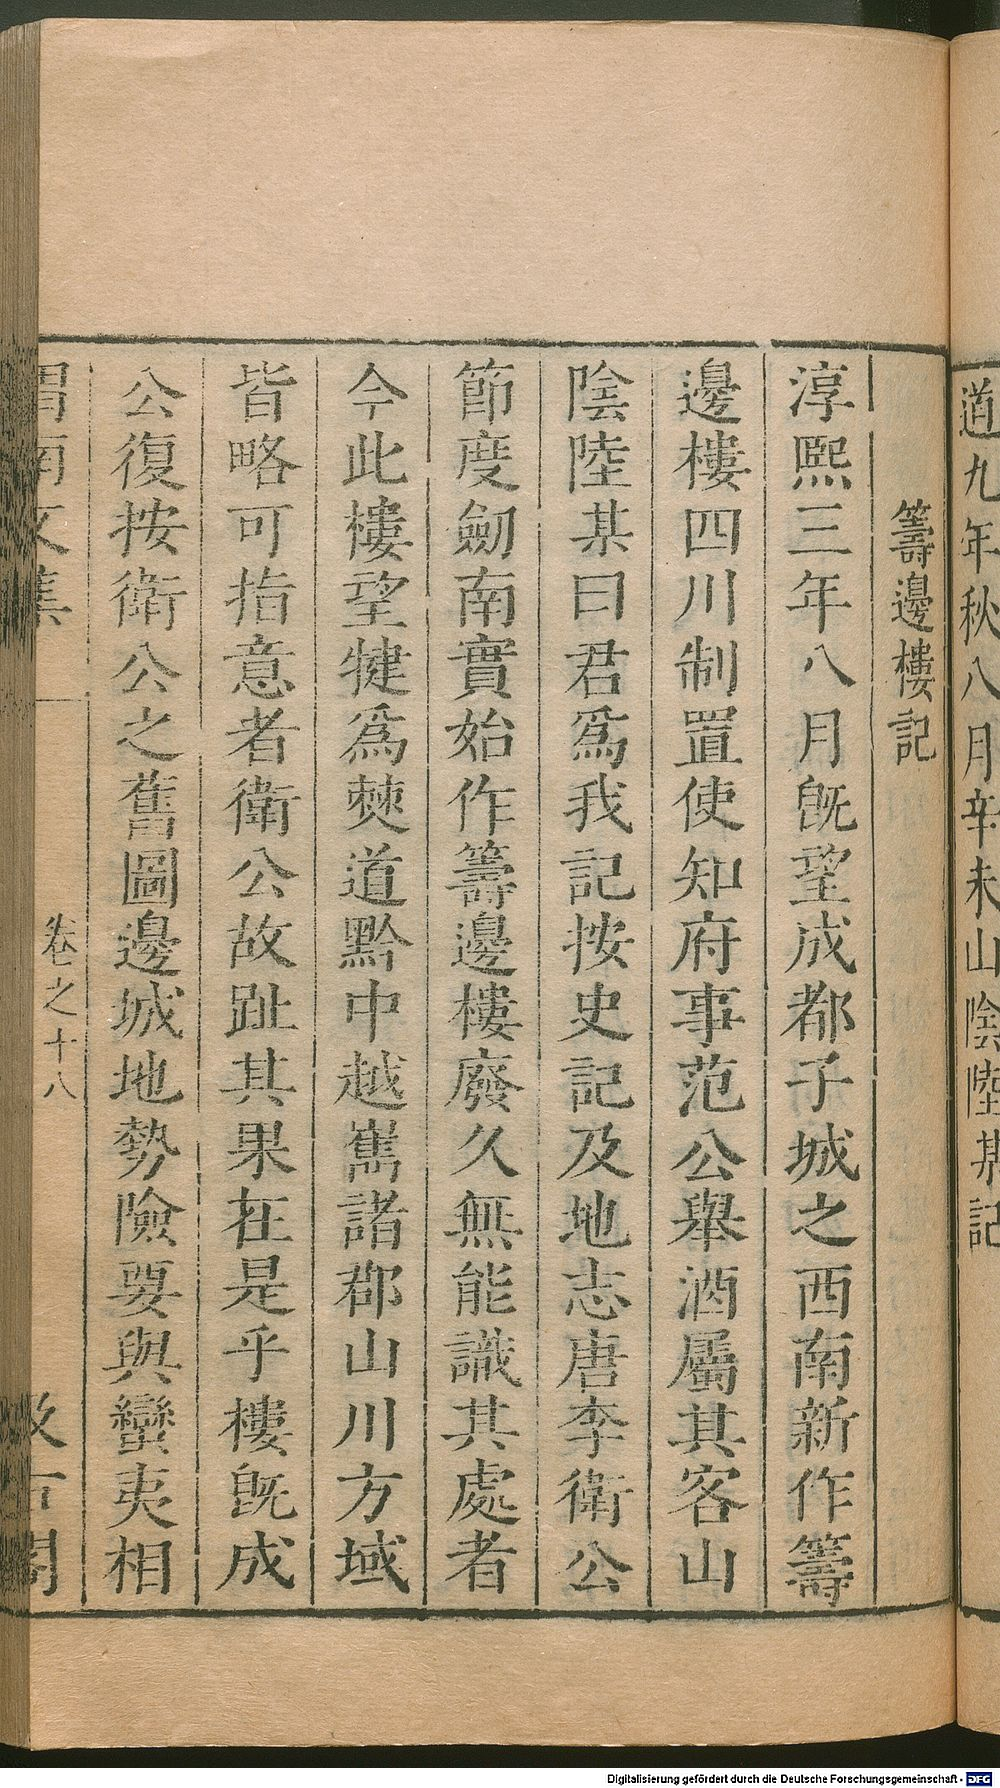 道九年秋八月辛未山陰陸某記
籌邊樓記
淳熙三年八月旣望成都子城之西南新作籌
邊樓四川制置使知府事范公舉酒屬其客山
陰陸某曰君爲我記按史記及地志唐李衛公
節度劒南實始作籌邊樓廢久無能識其處者
今此樓望犍爲僰道黔中越嶲諸郡山川方域
皆略可指意者衛公故趾其果在是乎樓旣成
公復按衛公之舊圖邊城地勢險要與蠻夷相
渭南文集 卷之十八 汲古閣
Digitalisierung gefördert durch die Deutsche Forschungsgemeinschaft - DFG